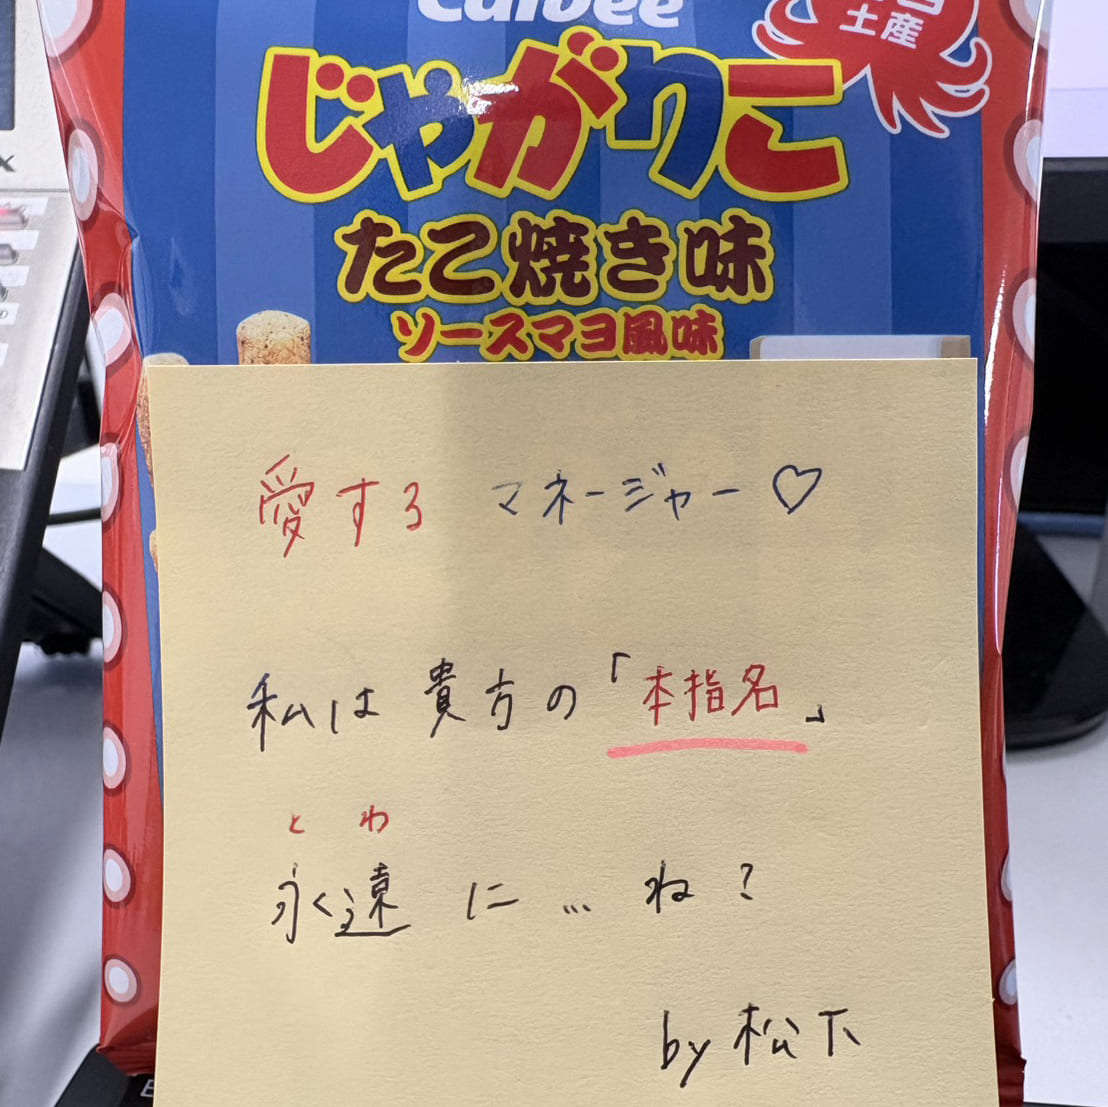 Calbee
土産
じゃがりこ
たこ焼き味
ソースマヨ風味
愛する マネージャー♡
私は 貴方の「本指名」
とわ
永遠 に … ね?
by 松下